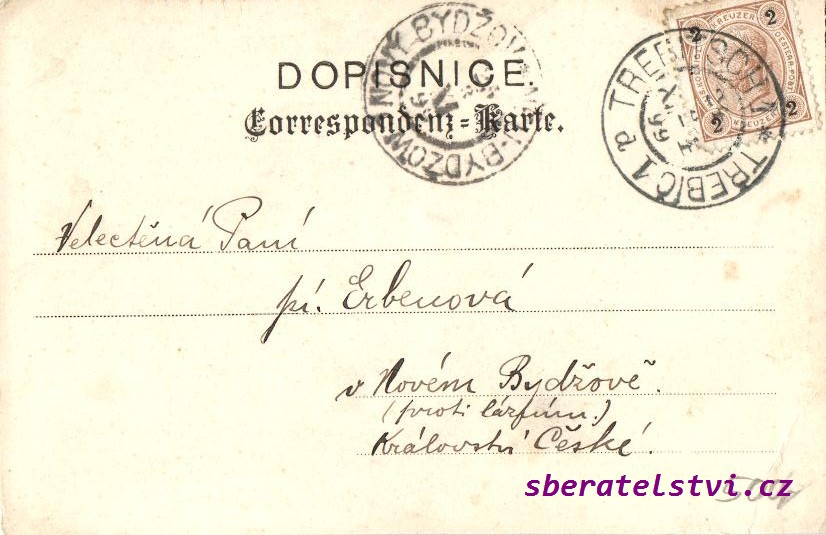 DOPISNICE.
Correspondenz-Karte.
NOVÝ BYDŽOV
BYDŽOW
TREBITSCH 1 * TŘEBÍČ 1
99
2 KREUZER 2
2 KREUZER 2
Velectěná Paní
pí. Erbenová
v Novém Bydžově.
(proti lázním.)
Království České.
sberatelstvi.cz